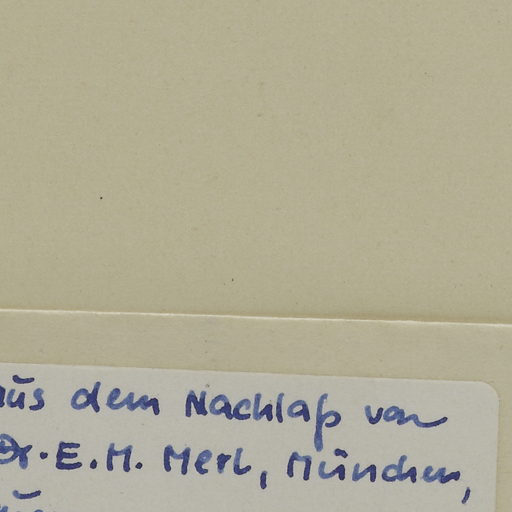 aus dem Nachlaß von
Dr. E. M. Merl, München,